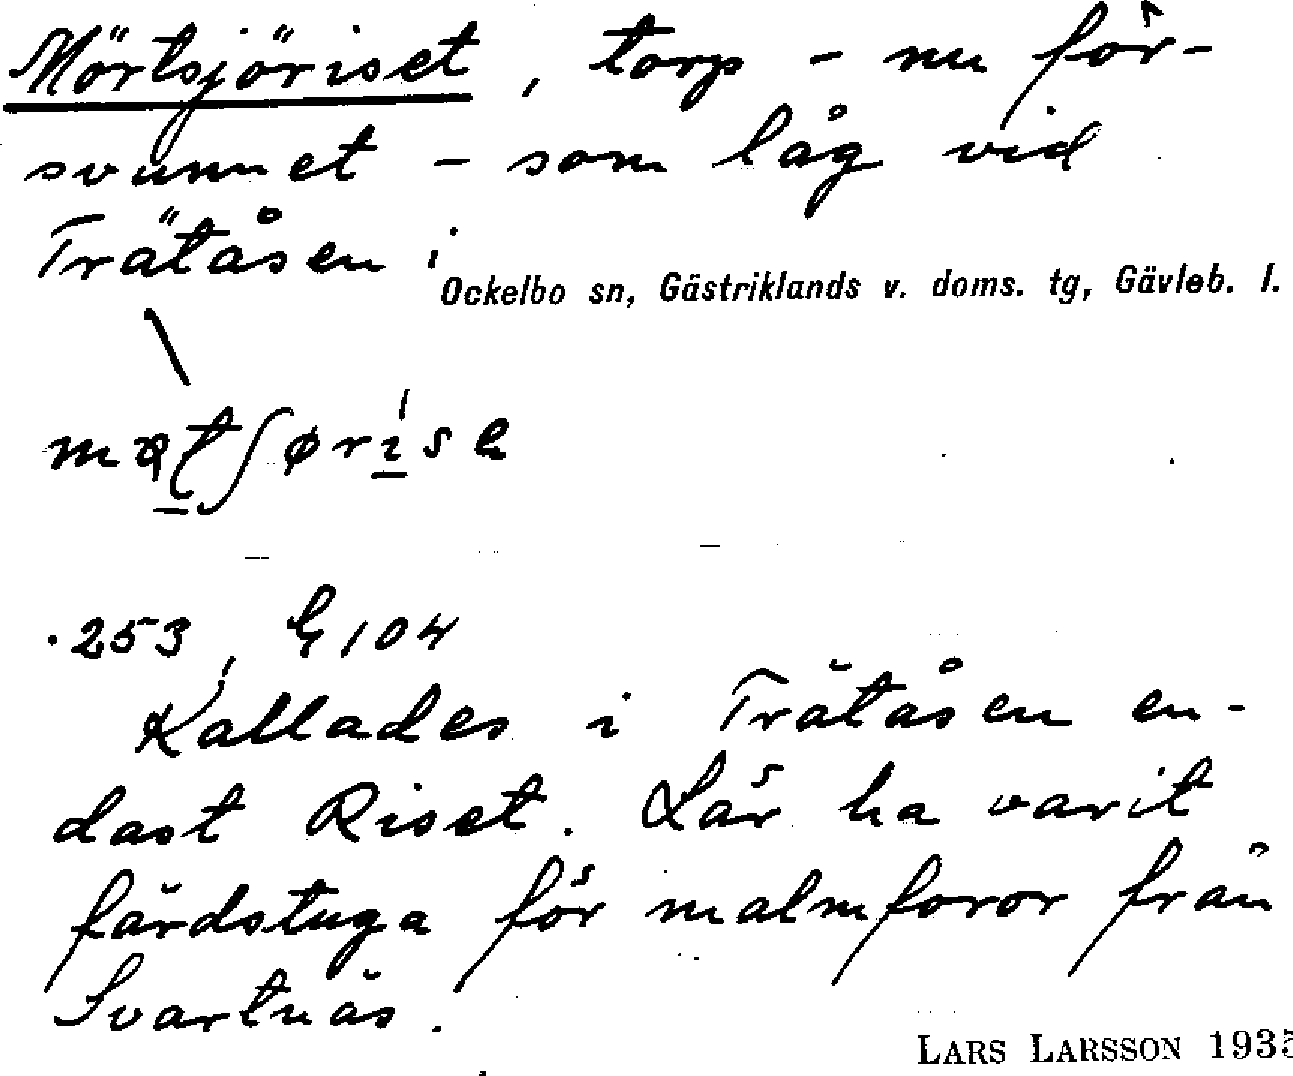 Mörtsjöriset, torp - nu för-
svunnet - som låg vid
Trätåsen i
Ockelbo sn, Gästriklands v. doms. tg, Gävleb. l.
253, G 104
Kallades i Trätåsen en-
dast Riset. Lär ha varit
färdstuga för malmforor från
Svartnäs.
LARS LARSSON 193